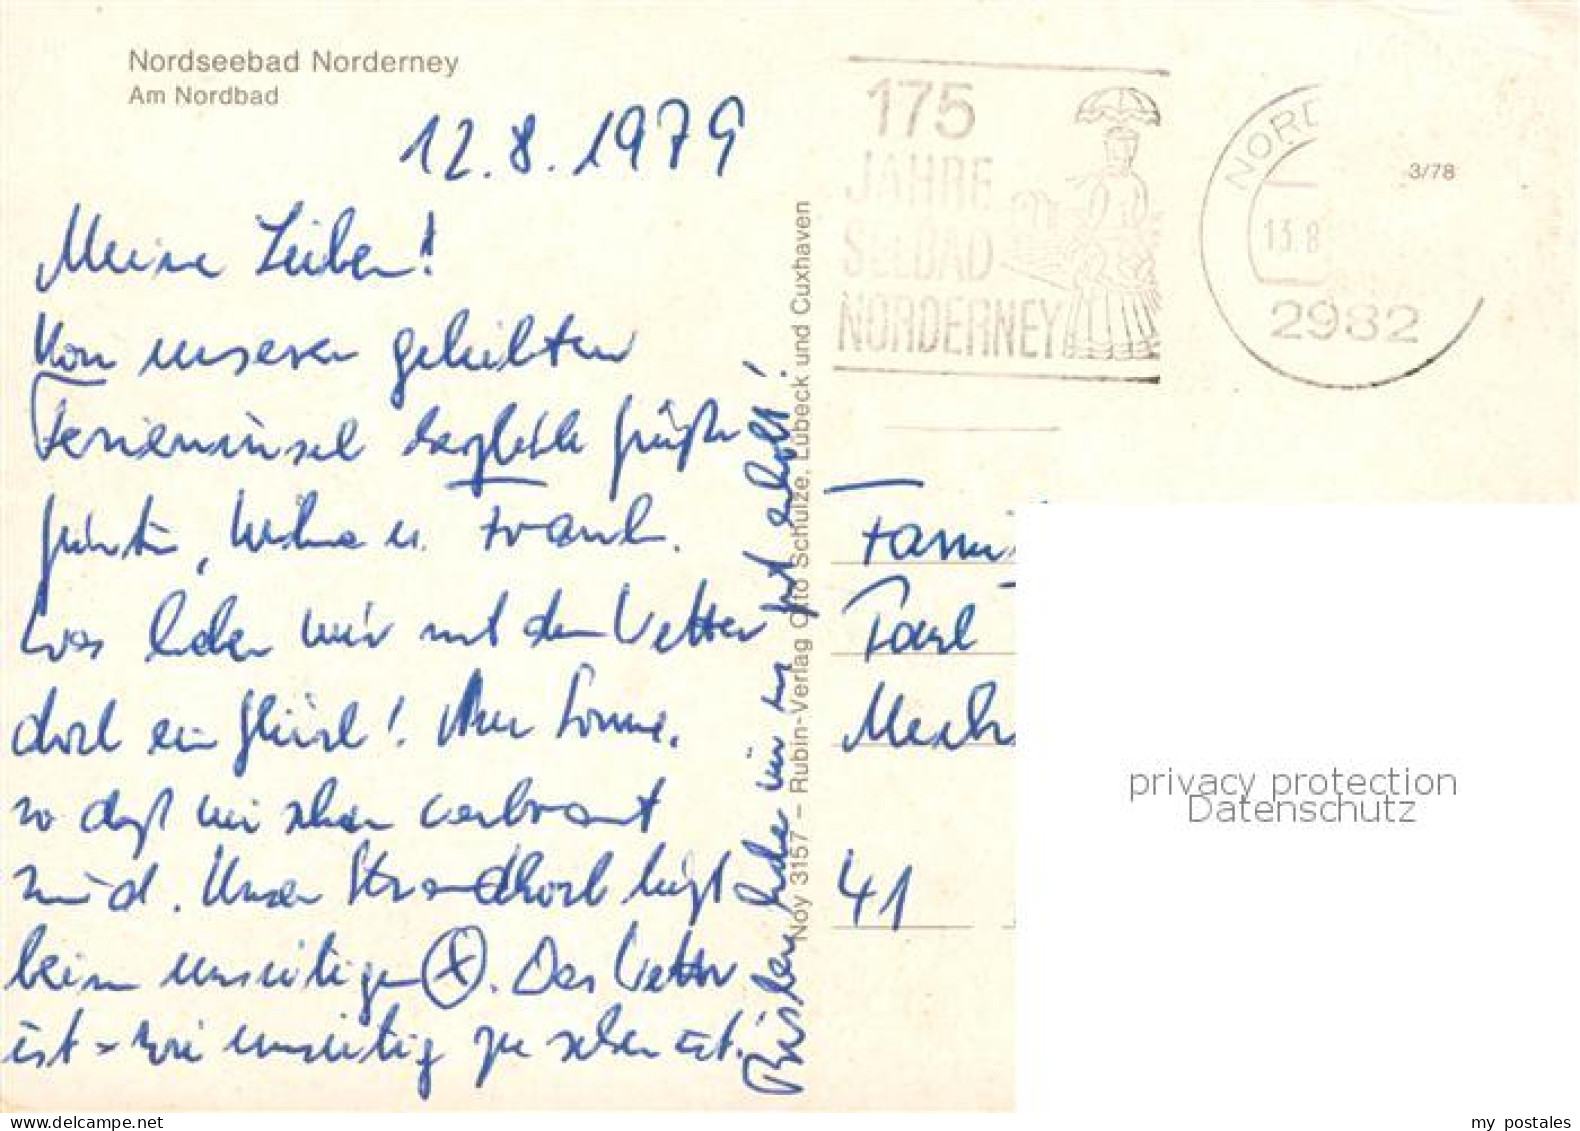 Nordseebad Norderney
Am Nordbad
12.8.1979
Meine Lieben!
Von unserer geliebten
Ferieninsel herzliche Grüße
Günter, u. Frank.
Was haben wir mit dem Wetter
doch ein Glück! Nur Sonne,
so daß wir schon verbrannt
sind. Unser Strandkorb liegt
beim umseitigen X. Das Wetter
ist - wie umseitig zu sehen ist!
Bisher habe wir uns gut erholt!
Noy 3157 – Rubin-Verlag Otto Schulze, Lübeck und Cuxhaven
175
JAHRE
SEEBAD
NORDERNEY
NORD
13.8
2982
3/78
Fami
Karl
41
privacy protection
Datenschutz
my postales